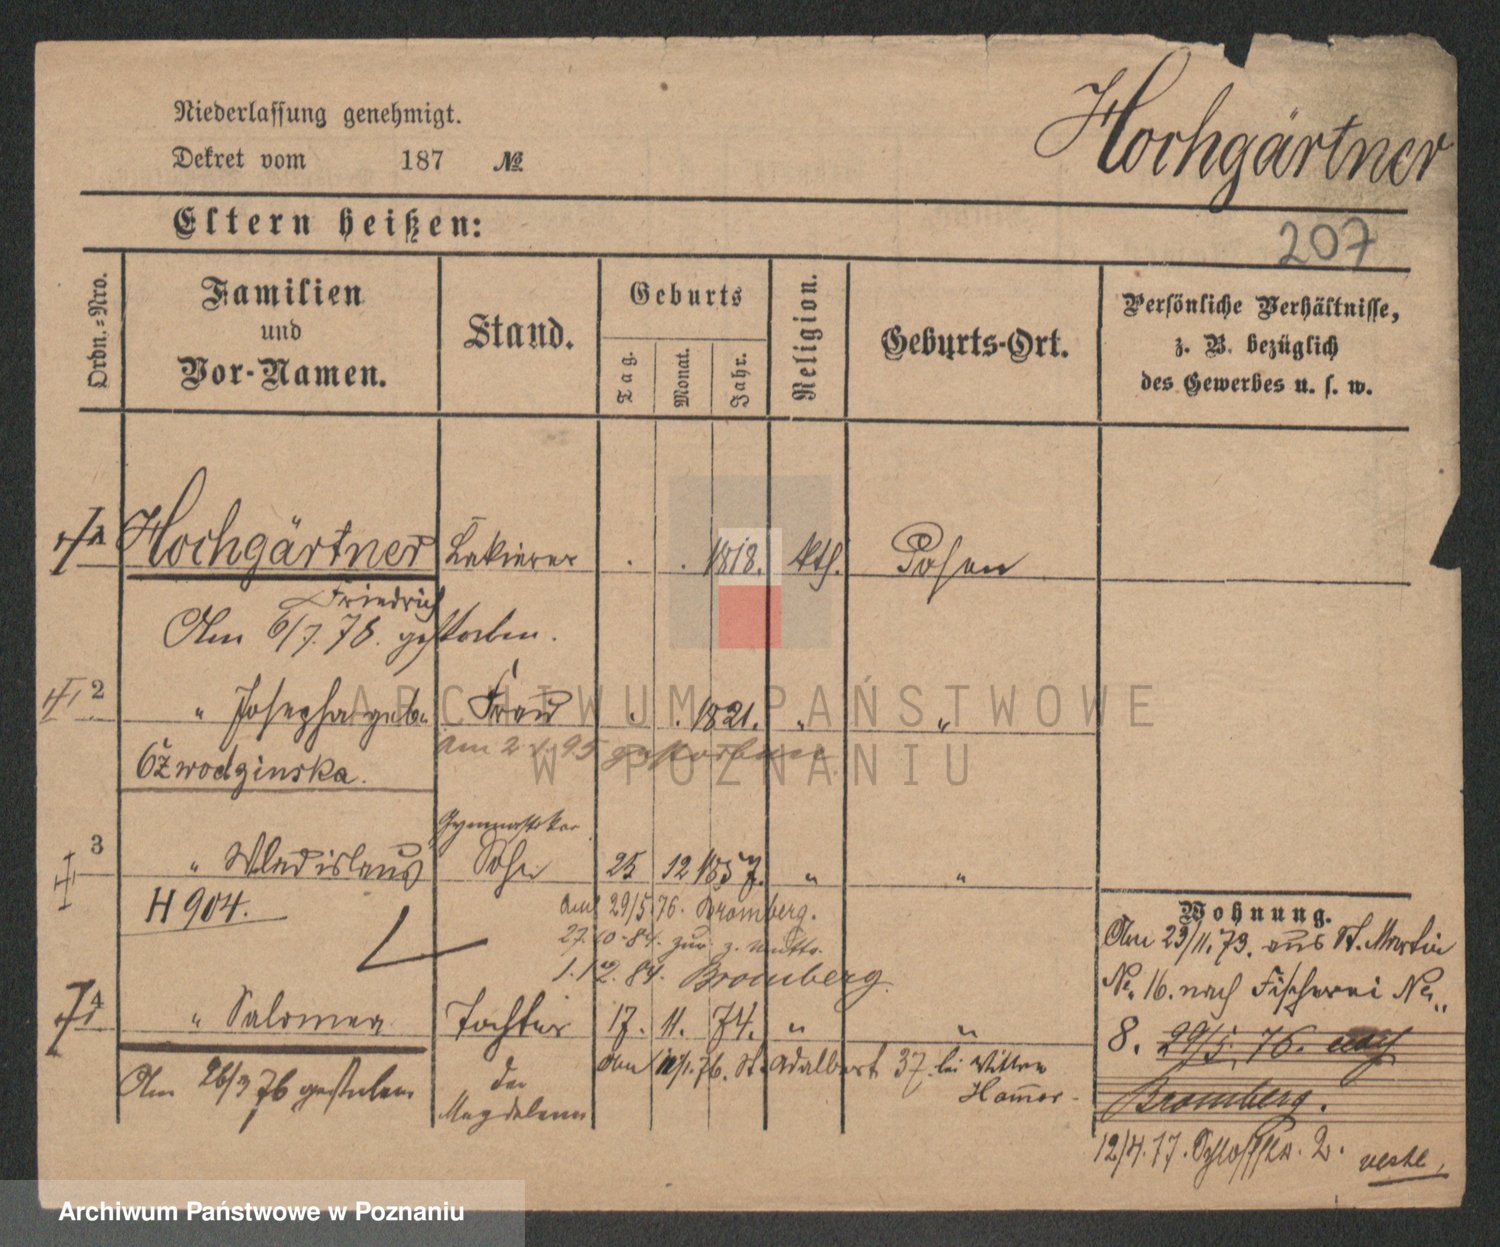 Niederlassung genehmigt.
Dekret vom 187 №
Hochgärtner
Eltern heißen:
207
Ordn.=Nro.
Familien
und
Vor-Namen.
Stand.
Geburts
Tag.
Monat.
Jahr.
Religion.
Geburts-Ort.
Persönliche Verhältnisse,
z. B. bezüglich
des Gewerbes u. s. w.
Hochgärtner Lakierer . . 1818. kth. Posen
Friedrich
Am 6/7. 78. gestorben.
2 " Josepha geb. Frau . . 1821. " "
Czwodzinska.
Am 2 95 gestorben
Gymnastiker
3 " Wladislaus Sohn 25 12 1857. " "
H 904.
29/5 76. Bromberg.
27.10.84. zur. z. Mutter.
1.12.84. Bromberg.
4 " Salomea Tochter 17. 11. 74. " "
der
Magdalena
Am 26/3 76 gestorben
76. St. Adalbert 37. bei Wittwe
Wohnung.
Am 23/11. 73. aus St. Martin
No. 16. nach Fischerei No.
8. 29/5. 76. nach
Bromberg.
12/4. 77. Schloßstr. 2.
ARCHIWUM PAŃSTWOWE
W POZNANIU
Archiwum Państwowe w Poznaniu